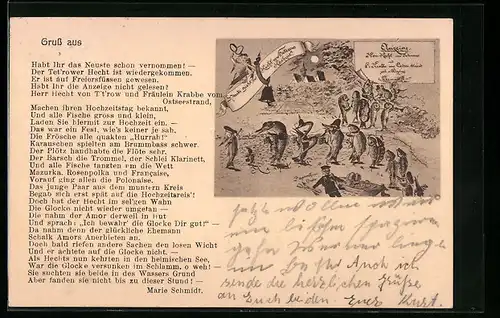 Gruß aus
Habt Ihr das Neuste schon vernommen! —
Der Tet'rower Hecht ist wiedergekommen.
Er ist auf Freiersfüssen gewesen.
Habt Ihr die Anzeige nicht gelesen?
Herr Hecht von T't'row und Fräulein Krabbe vom
Osterserstrand,
Machen ihren Hochzeitstag bekannt,
Und alle Fische gross und klein,
Laden Sie hiermit zur Hochzeit ein. —
Das war ein Fest, wie's keiner je sah.
Die Frösche alle quakten „Hurrah!"
Karauschen spielten am Brummbass schwer.
Der Plötz handhabte die Flöte sehr.
Der Barsch die Trommel, der Schlei Klarinett,
Und alle Fische tanzten um die Wett
Mazurka, Rosenpolka und Française,
Vorauf ging allen die Polonaise.
Das junge Paar aus dem muntern Kreis
Begab sich erst spät auf die Hochzeitsreis'!
Doch bat der Hecht im sel'gen Wahn
Die Glocke nicht wieder umgetan —
Die nahm der Amor derweil in hut
Und sprach: „Ich bewahr' die Glocke Dir gut!" —
Da nahm denn der glückliche Ehemann
Schalk Amors Anerbieten an.
Doch bald riefen andre Sachen den losen Wicht
Und er achtete auf die Glocke nicht. —
Als Hechts nun kehrten in den heimischen See,
War die Glocke versunken im Schlamm, o weh! —
Sie suchten sie beide in des Wassers Grund
Aber fanden sie nicht bis zu dieser Stund! —
Marie Schmidt.
jetzt wollen wir
ein bißchen spazieren
gehn
Ihr Auch ich
sende die herzlichen Grüße
an Euch beiden. Euer Kurt.